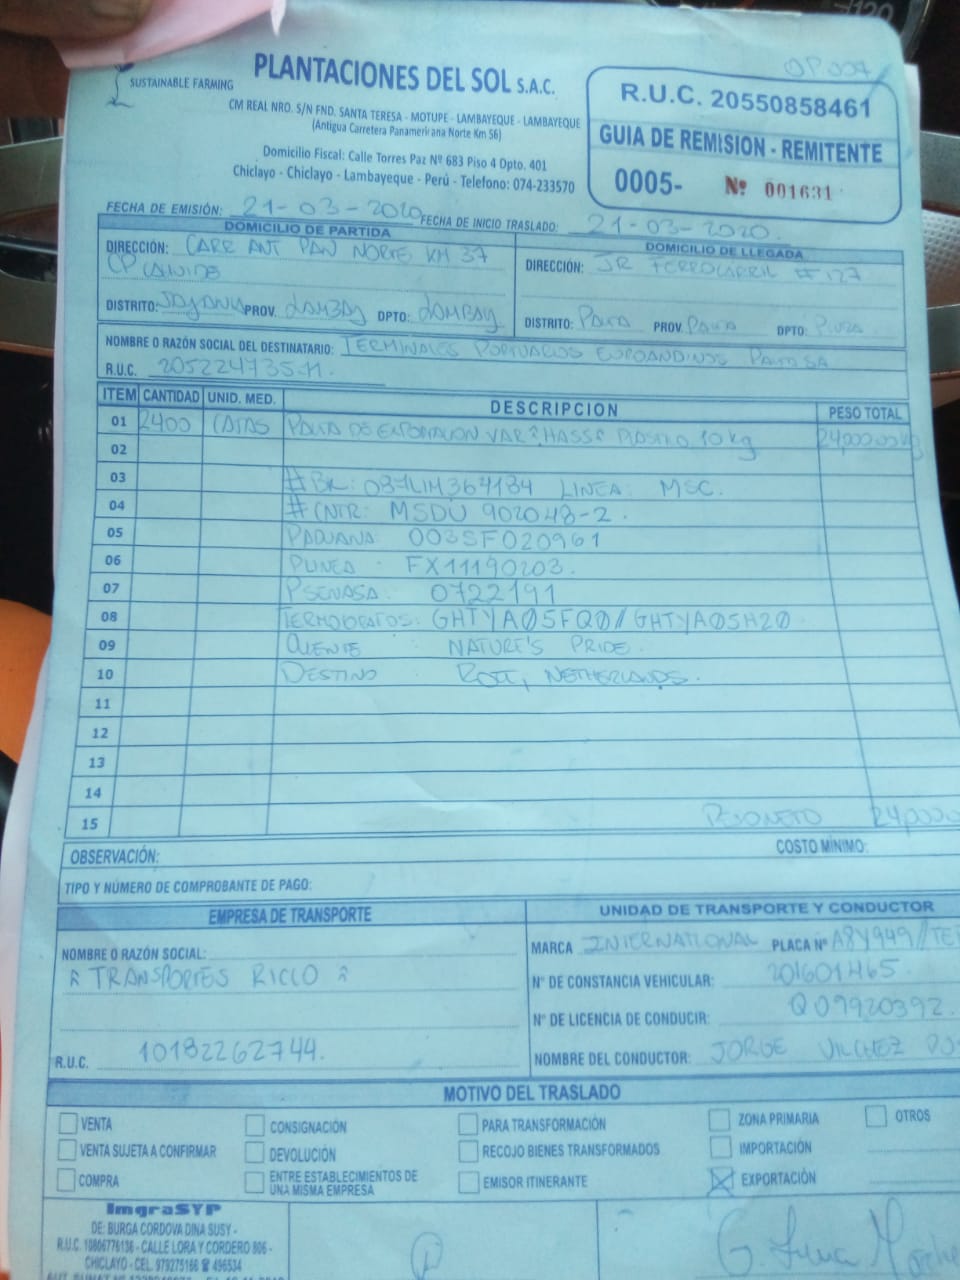 OP.007
SUSTAINABLE FARMING
PLANTACIONES DEL SOL S.A.C.
CM REAL NRO. S/N FND. SANTA TERESA - MOTUPE - LAMBAYEQUE - LAMBAYEQUE
(Antigua Carretera Panamericana Norte Km 56)
Domicilio Fiscal: Calle Torres Paz Nº 683 Piso 4 Dpto. 401
Chiclayo - Chiclayo - Lambayeque - Perú - Telefono: 074-233570
R.U.C. 20550858461
GUIA DE REMISION - REMITENTE
0005- Nº 001631
FECHA DE EMISIÓN: 21-03-2020 FECHA DE INICIO TRASLADO: 21-03-2020.
DOMICILIO DE PARTIDA
DIRECCIÓN: CARR ANT PAN NORTE KM 37
CP
DISTRITO: JAYANCA PROV. LAMBAY DPTO: LAMBAY
DOMICILIO DE LLEGADA
DIRECCIÓN: JR FERROCARRIL # 127
DISTRITO: PAITA PROV. PAITA DPTO: PIURA
NOMBRE O RAZÓN SOCIAL DEL DESTINATARIO: TERMINALES PORTUARIOS EUROANDINOS PAITA SA
R.U.C. 20522473571.
ITEM CANTIDAD UNID. MED. DESCRIPCION PESO TOTAL
01 2400 CAJAS PALTA DE EXPORTACION VAR: HASS PLASTICO 10 kg 24,000.00 kg
02
03 # BK: 087LIM364184 LINEA: MSC.
04 # CNTR: MSDU 902048-2.
05 P.ADUANA: 003SF020961
06 P.LINEA : FX11190203.
07 P.SENASA: 0722191
08 TERMOGRAFOS: GHTYA05FQ0//GHTYA05H20
09 CLIENTE : NATURE'S PRIDE.
10 DESTINO : ROTT, NETHERLANDS.
11
12
13
14
15 PESO NETO 24,000
OBSERVACIÓN: COSTO MÍNIMO:
TIPO Y NÚMERO DE COMPROBANTE DE PAGO:
EMPRESA DE TRANSPORTE
NOMBRE O RAZÓN SOCIAL:
" TRANSPORTES RICCO "
R.U.C. 10182262744.
UNIDAD DE TRANSPORTE Y CONDUCTOR
MARCA INTERNATIONAL PLACA Nº A8Y949//TE
Nº DE CONSTANCIA VEHICULAR: 201601465.
Nº DE LICENCIA DE CONDUCIR: Q09920392.
NOMBRE DEL CONDUCTOR: JORGE VILCHEZ
MOTIVO DEL TRASLADO
VENTA CONSIGNACIÓN PARA TRANSFORMACIÓN ZONA PRIMARIA OTROS
VENTA SUJETA A CONFIRMAR DEVOLUCIÓN RECOJO BIENES TRANSFORMADOS IMPORTACIÓN
COMPRA ENTRE ESTABLECIMIENTOS DE UNA MISMA EMPRESA EMISOR ITINERANTE EXPORTACIÓN
ImgraSYP
DE: BURGA CORDOVA DINA SUSY -
R.U.C. 10806776136 - CALLE LORA Y CORDERO 806 -
CHICLAYO - CEL. 979275166 ☎ 496534